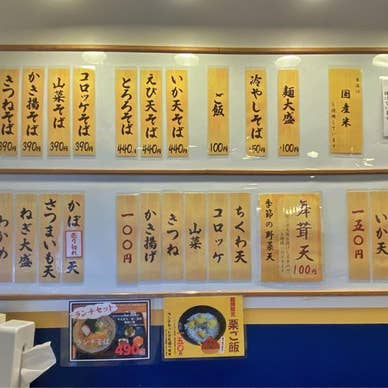 きつねそば 390円
かき揚そば 390円
山菜そば 390円
コロッケそば 390円
とろろそば 440円
えび天そば 440円
いか天そば 440円
ご飯 100円
冷やしそば 50円
麺大盛 100円
国産米
わかめ
ねぎ大盛
さつまいも天
かぼ天
売り切れ
一〇〇円
かき揚げ
きつね
山菜
コロッケ
ちくわ天
季節の野菜天
舞茸天
100円
いか天
一五〇円
ランチセット
ランチそば
490円
栗ご飯